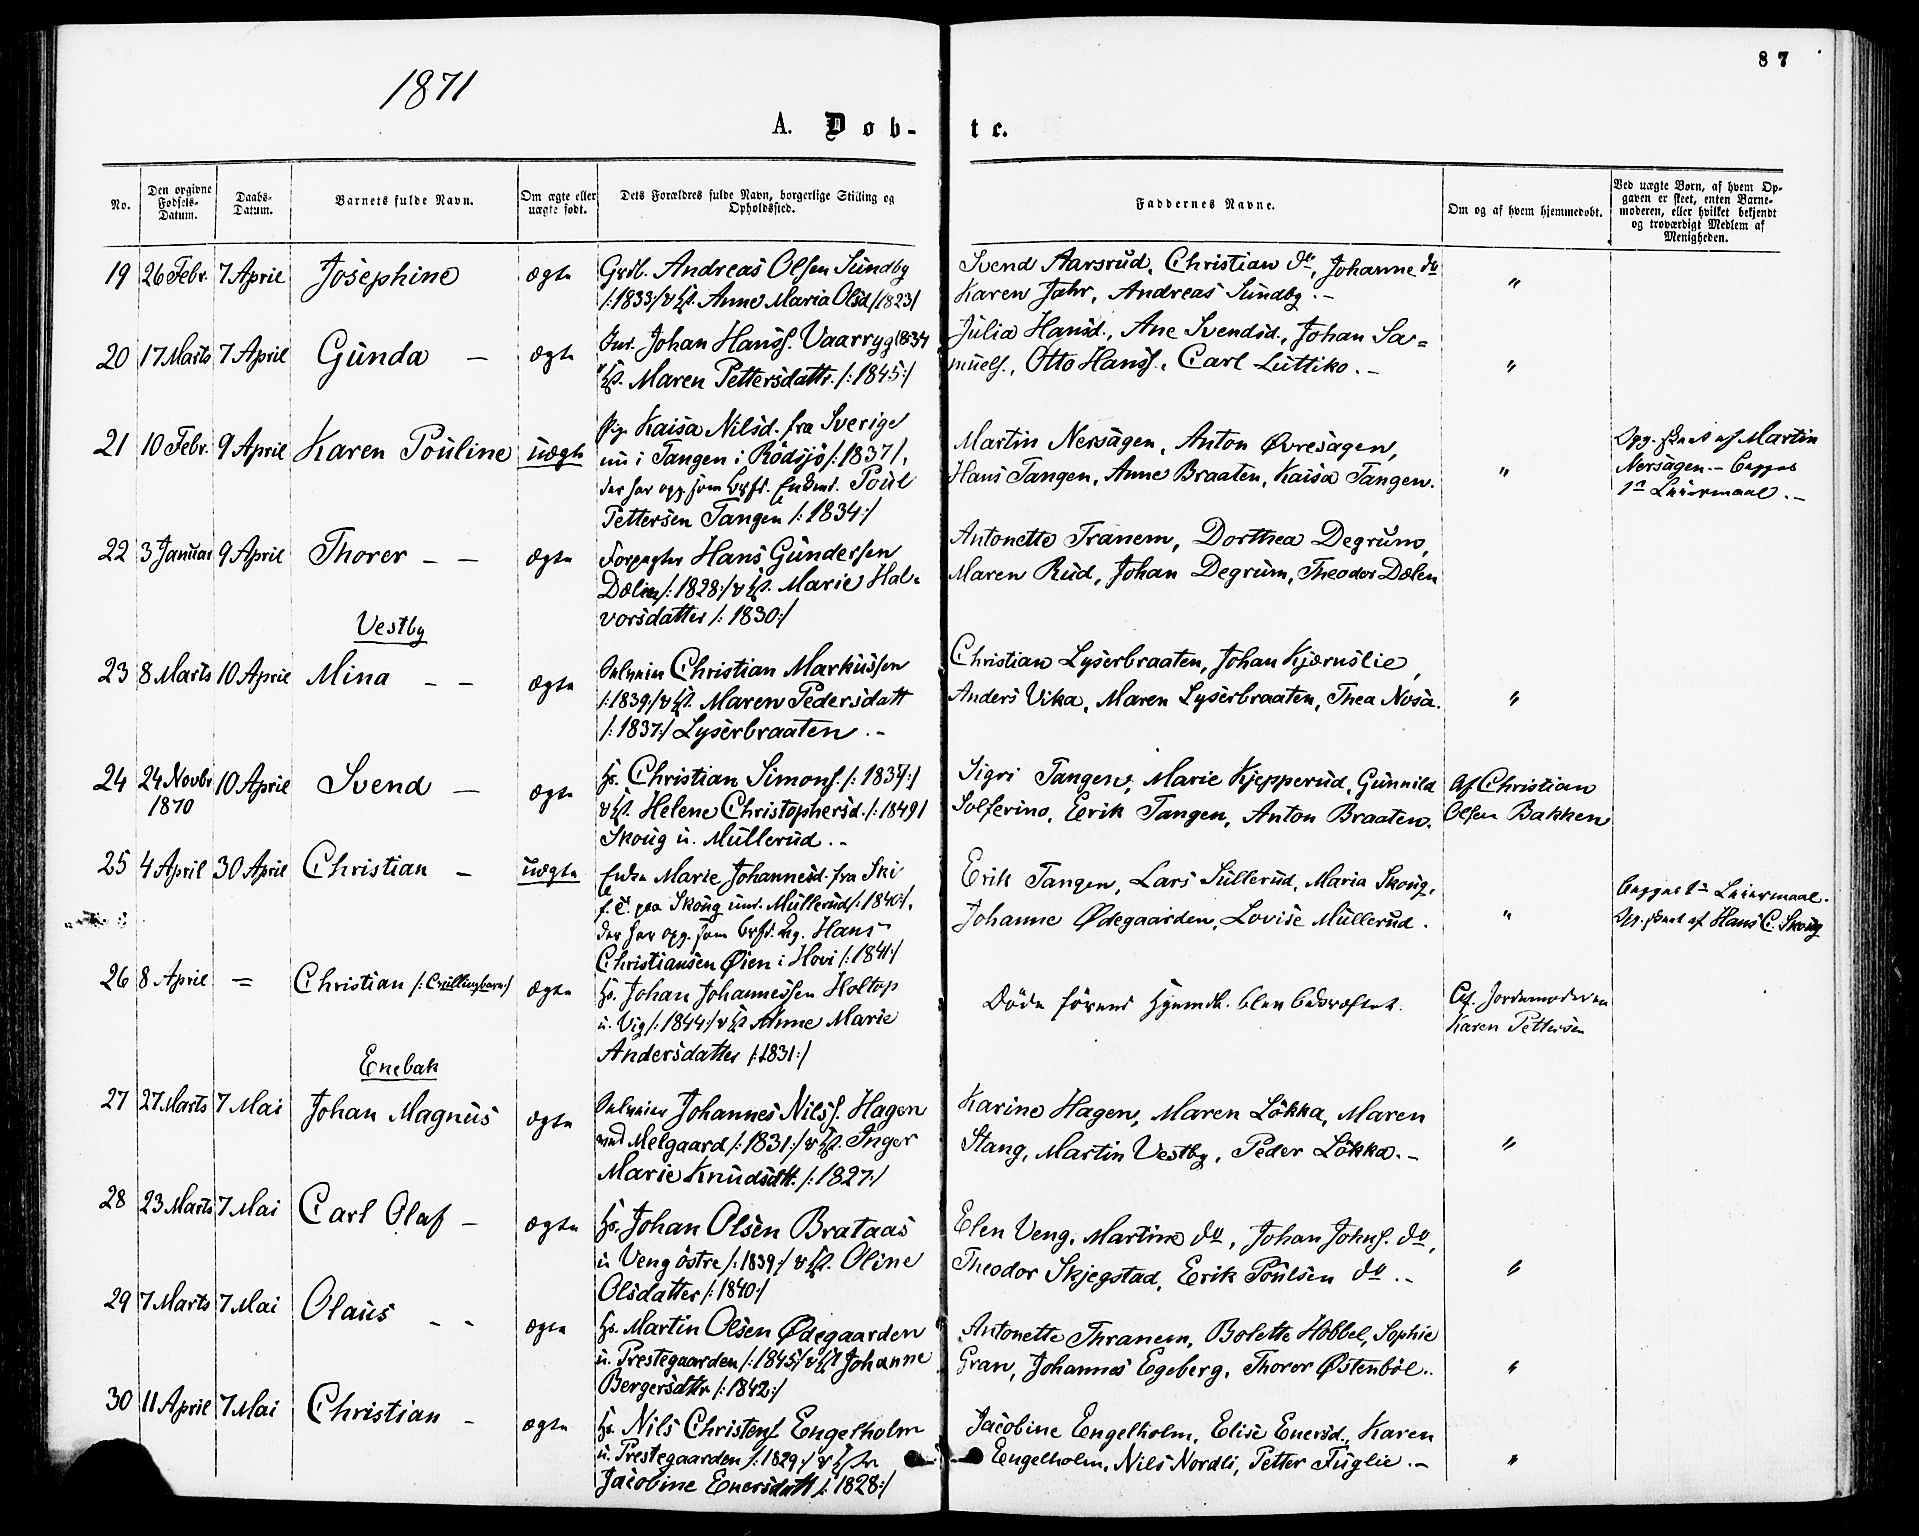 87
1871
A. Døb-
te.
No.
Den opgivne Fødsels-Datum.
Daabs-Datum.
Barnets fulde Navn.
Om ægte eller uægte født.
Dets Forældres fulde Navn, borgerlige Stilling og Opholdssted.
Faddernes Navne.
Om og af hvem hjemmedøbt.
Ved uægte Børn, af hvem Op-
gaven er skeet, enten Barne-
moderen, eller hvilket bekjendt
og troværdigt Medlem af
Menigheden.
19 26 Febr. 7 April Josephine ægte
Grdb. Andreas Olsen Sundby
/:1833/ v Hst. Anne Maria Olsd /1823/
Svend Aarsrud, Christian do, Johanne do
Karen Jahr, Andreas Sundby. –
"
20 17 Marts 7 April Gunda – ægte
Johan Hanss. Vaarryg 1834
Hst. Maren Pettersdattr. /:1845:/
Julia Hansd., Ane Svendsd., Johan Sa=
muels., Otto Hanss., Carl Luttiko. –
"
21 10 Febr. 9 April Karen Pouline uægte
Pig. Kaisa Nilsd. fra Sverige
nu i Tangen i Rødsjø /:1837/,
der har opg. som Brfd. Enkemd. Poul
Pettersen Tangen /:1834:/
Martin Nersagen, Anton Øvresagen,
Hans Tangen, Anne Braaten, Kaisa Tangen.
"
Opg. skeet af Martin
Nersagen. – Begges
1ste Leiermaal. –
22 3 Januar 9 April Thorer – – ægte
Forpagter Hans Gundersen
Dælin /:1828:/ v Hst. Marie Hal-
vorsdatter /:1830:/
Antonette Tranem, Dorthea Degrum,
Maren Rud, Johan Degrum, Theodor Dælen
Vestby
23 8 Marts 10 April Mina – – ægte
Selveier Christian Markussen
/:1839:/ v Hst. Maren Pedersdatt
/:1837:/ Lyserbraaten. –
Christian Lyserbraaten, Johan Kjærnslie,
Anders Vika, Maren Lyserbraaten, Thea Nosa.
"
24 24 Novbr 1870 10 April Svend – ægte
Hs. Christian Simons. /:1837:/
v Hst. Helene Christophersd. /:1849/
Skoug u. Mullerud. –
Sigri Tangen, Marie Kjepperud, Gunnild
Solferino, Eerik Tangen, Anton Braaten.
Af Christian
Olsen Bakken
25 4 April 30 April Christian – uægte
Enke Marie Johannesd. fra Ski
f. T. paa Skoug und. Mullerud /:1840:/,
der har opg. som Brfd. Ug. Hans
Christiansen Øien i Hovi /:1841:/
Erik Tangen, Lars Sullerud, Maria Skoug,
Johanne Ødegaarden, Lovise Müllerud.
"
Begges 1ste Leiermaal.
Opg. skeet af Hans C. Skoug
26 8 April = Christian /:Tvillingbarn:/ ægte
Hs. Johan Johannessen Holtop
u. Vig /:1844:/ v Hst Anne Marie
Andersdatter /:1831:/
Døde førend Hjemdb. blev bekræftet.
Af. Jordemoderen
Karen Pettersen
Enebak
27 27 Marts 7 Mai Johan Magnus ægte
Selveier Johannes Nilss. Hagen
ved Melgaard /:1831:/ v Hst. Inger
Marie Knudsdtt. /:1827:/
Karine Hagen, Maren Løkka, Maren
Stang, Martin Vestby, Peder Løkka. –
"
28 23 Marts 7 Mai Carl Olaf – ægte
Hs. Johan Olsen Brataas
u Veng østre /:1839:/ v Hst. Oline
Olsdatter /:1840:/
Elen Veng, Martine do, Johan Johns. do,
Theodor Skjegstad, Erik Poulsen do. –
"
29 7 Marts 7 Mai Olaus – – ægte
Hs. Martin Olsen Ødegaarden
u. Prestegaarden /:1845/ v Hst Johanne
Bergersdttr /:1842:/
Antonette Thranem, Bolette Hobbel, Sophie
Gran, Johannes Egeberg, Thorer Østenbøl. –
"
30 11 April 7 Mai Christian – ægte
Hs. Nils Christens Engelholm
u. Prestegaarden /:1829:/ v Hstr
Jacobine Enersdatt /:1828:/
Jacobine Engelholm, Elise Enersd., Karen
Engelholm, Nils Nordli, Petter Fuglie. –
"